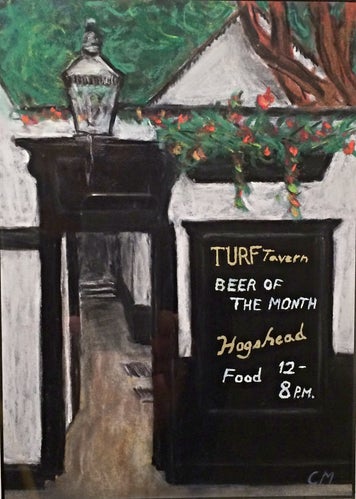 TURF Tavern
BEER OF
THE MONTH
Hogshead
Food 12-
8 P.M.
CM